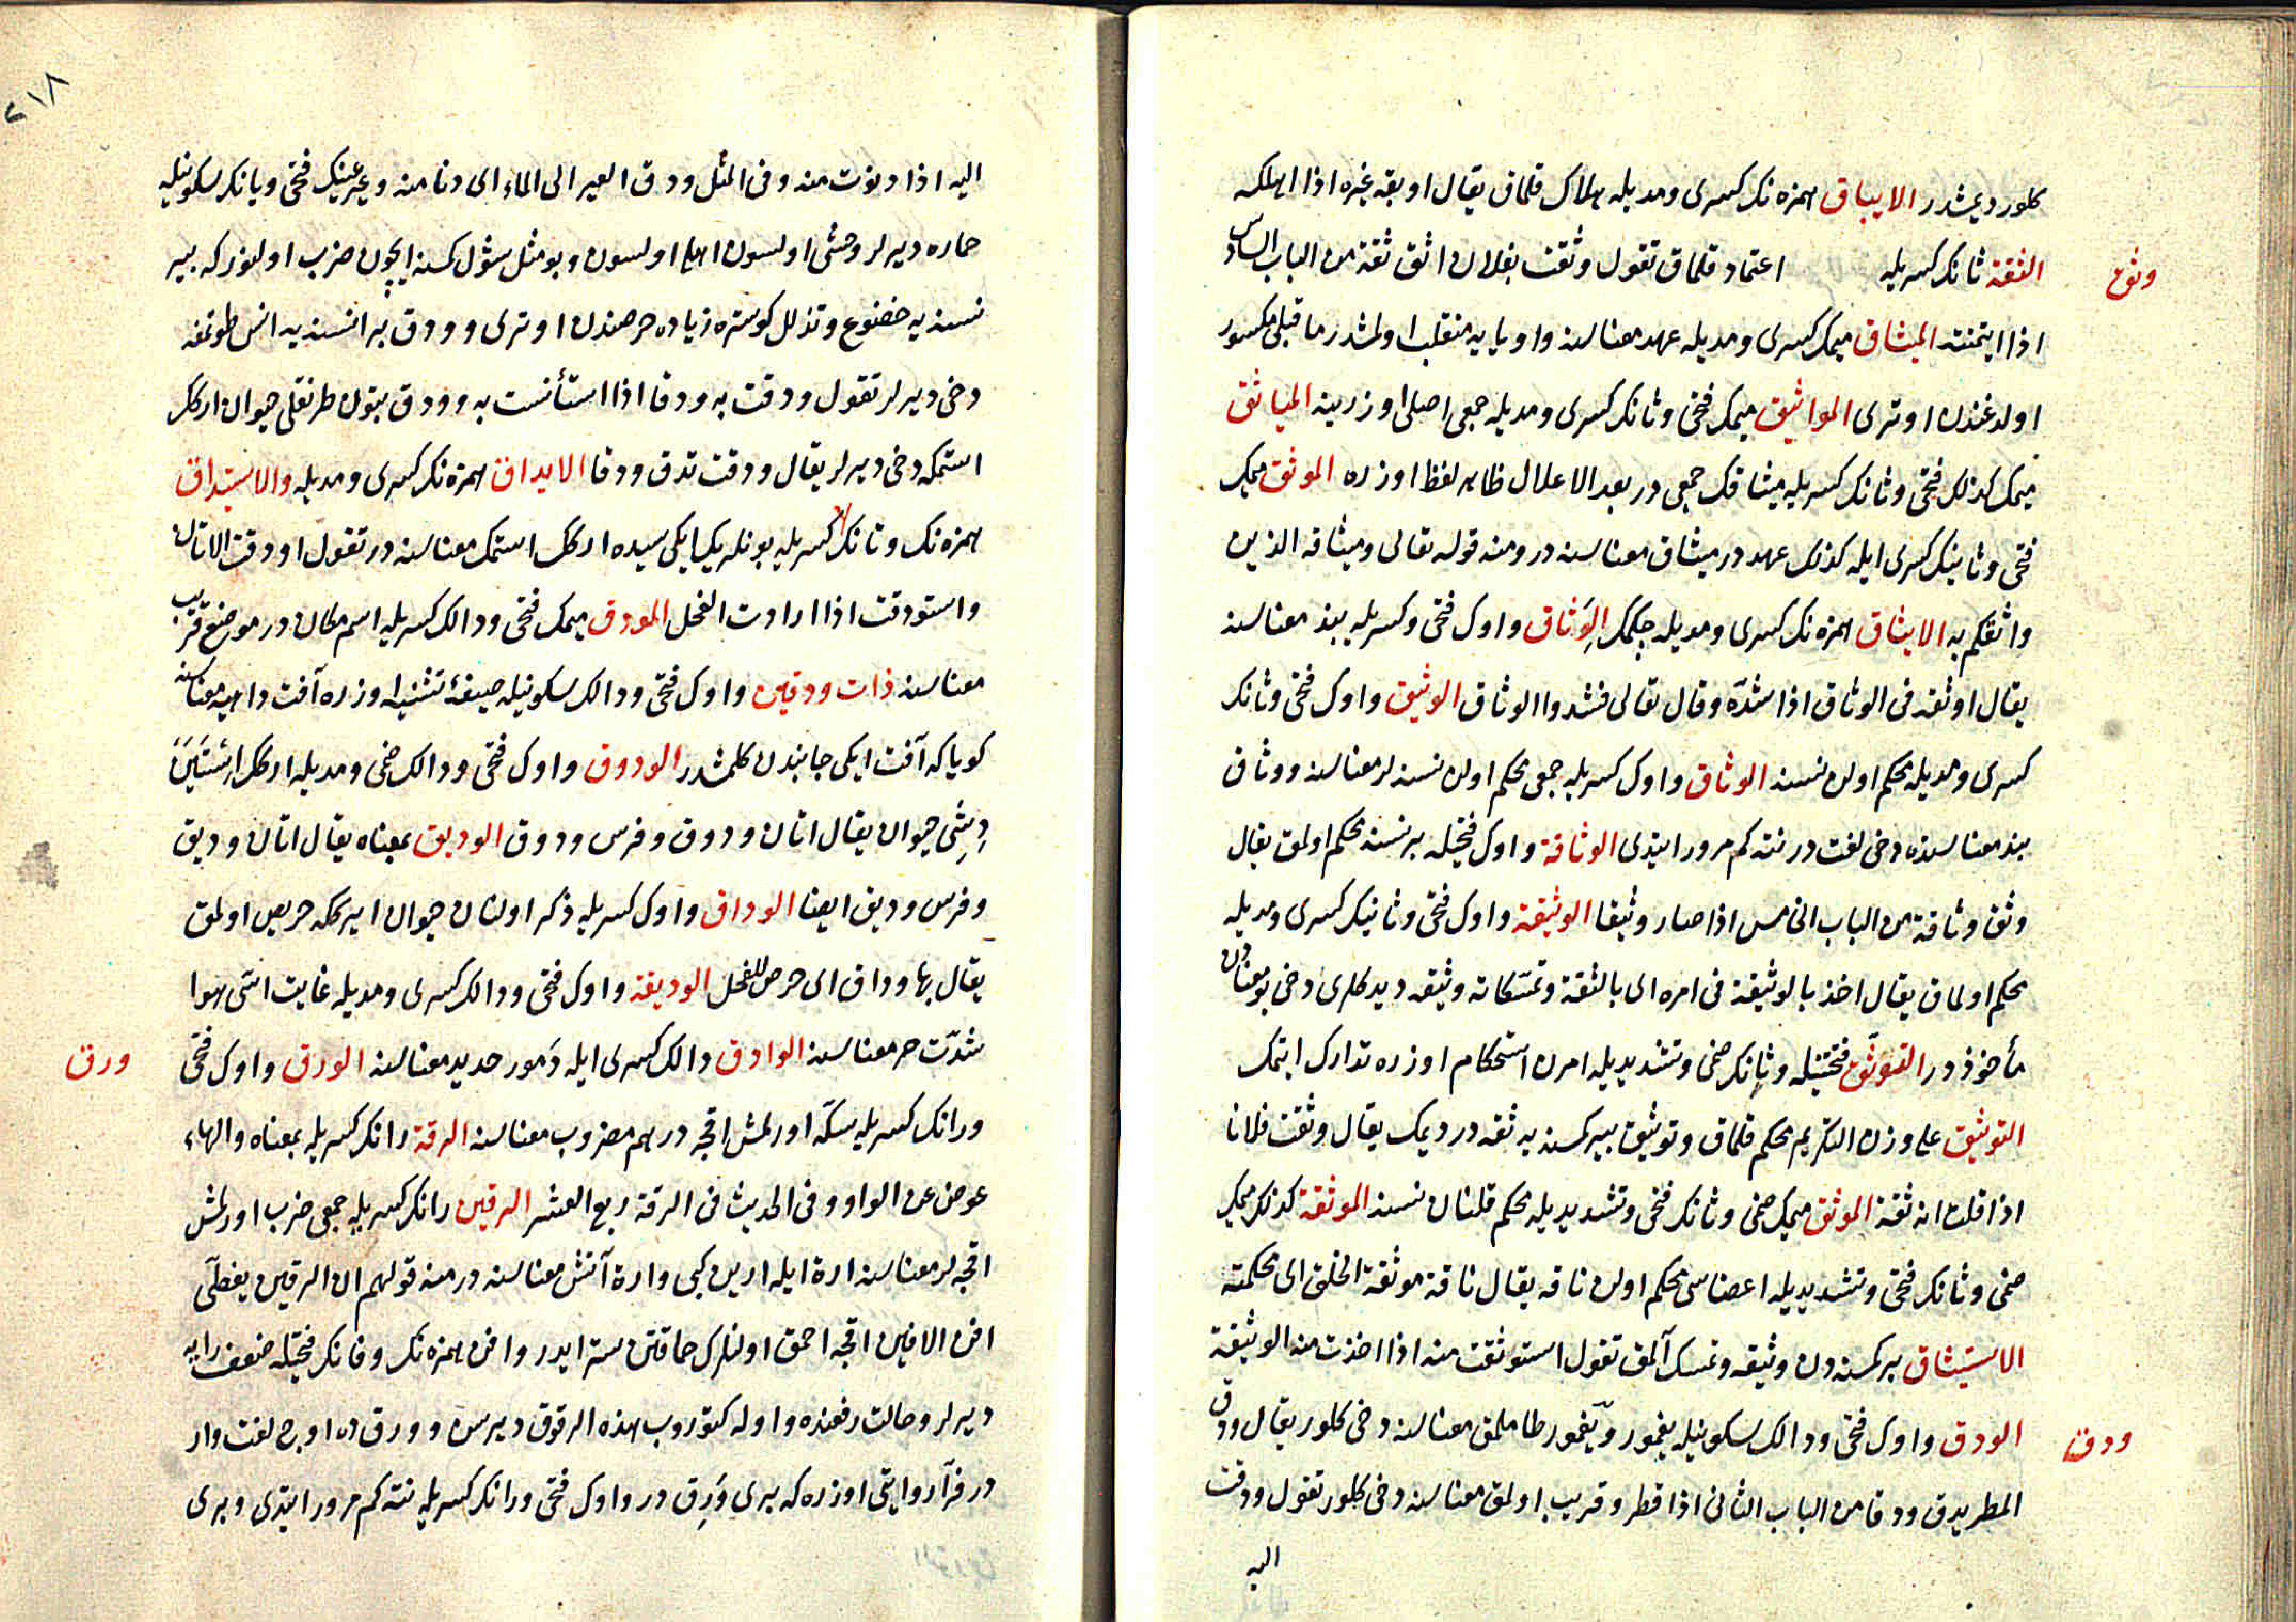 كلور ديمشدر الايباق همزه نك كسرى ومديله هلاك قلماق يقال اوبقه غيره اذا اهلكه
وثق
الثقة ثانك كسريله اعتماد قلماق تقول وثقت بفلان اثق ثقة من الباب السادس
اذا ايتمنته الميثاق ميمك كسرى ومديله عهد معناسنه واو يايه منقلب اولمشدر ما قبلى مكسور
اولدغندن اوترى المواثيق ميمك فتحى وثانك كسرى ومديله جمعى اصلى اوزرينه المياثق
ميمك كذلك فتحى وثانك كسريله ميثاقك جمعى در بعد الاعلال ظاهر لفظ اوزره الموثق ميمك
فتحى وثانيك كسرى ايله كذلك عهد در ميثاق معناسنه در ومنه قوله تعالى وميثاقه الذين
واثقكم به الايثاق همزه نك كسرى ومديله چكمك الوَثاق واوك فتحى وكسريله بند معناسنه
يقال اوثقه فى الوثاق اذا شدّه وقال تعالى فشدوا الوثاق الوثيق واوك فتحى وثانك
كسرى ومديله محكم اولن نسنه الوثاق واوك كسريله جمعى محكم اولن نسنه لر معناسنه ووثاق
بند معناسنده دخى لغت در نته كم مرور ايتدى الوثاقة واوك فتحيله بر نسنه محكم اولمق يقال
وثق وثاقة من الباب الخامس اذا صار وثيقا الوثيقة واوك فتحى وثانيك كسرى ومديله
محكم اولماق يقال اخذ بالوثيقة فى امره اى بالثقة وتمسكاته وثيقه ديدكلرى دخى بو معنادن
مأخوذ در التوثّق فتحتيله وثانك ضمى وتشديديله امرن استحكام اوزره تدارك ايتمك
التوثيق على وزن التكريم محكم قلماق وتوثيق بير كسنه يه ثقه در ديمك يقال وثقت فلانا
اذا قلت انه ثقة الموثق ميمك ضمى وثانك فتحى وتشديديله محكم قلنان نسنه الموثقة كذلك ميمك
ضمى وثانك فتحى وتشديديله اعضاسى محكم اولن ناقه يقال ناقة موثقة الخلق اى محكمته
الاستيثاق بر كسنه دن وثيقه وتمسك آلمق تقول استوثقت منه اذا اخذت منه الوثيقة
ودق
الودق واوك فتحى ودالك سكونيله يغمور ويغمور طاملمق معناسنه دخى كلور يقال ودق
المطر يدق ودقا من الباب الثانى اذا قطر وقريب اولمق معناسنه دخى كلور تقول ودقت
اليه
٢١٨
اليه اذا دنوت منه وفى المثل ودق العير الى الماء اى دنا منه وعير عينك فتحى ويانك سكونيله
حماره ديرلر وحشى اولسون اهلى اولسون وبو مثل شول كسنه ايچون ضرب اولنور كه بير
نسنه يه خضوع وتذلل كوستره زياده حرصندن اوترى وودق بر نسنه يه انس طوتمغه
دخى ديرلر تقول ودقت به ودقا اذا استأنست به وودق بتون طرنقلى حيوان اركك
استمكه دخى ديرلر يقال ودقت تدق ودقا الايداق همزه نك كسرى ومديله والاستيداق
همزه نك وتانك كسريله بونلر يك ايكيسيده اركك استمك معناسنه در تقول اودقت الاتان
واستودقت اذا ارادت الفحل المودق ميمك فتحى ودالك كسريله اسم مكان در موضع قرب
معناسنه ذات ودقين واوك فتحى ودالك سكونيله صيغهٔ تثنيه اوزره آفت داهيه معناسنه
كويا كه آفت ايكى جانبدن كلمشدر الودوق واوك فتحى ودالك ضمى ومديله اركك استين
ديشى حيوان يقال اتان ودوق وفرس ودوق الوديق بمعناه يقال اتان وديق
وفرس وديق ايضا الوداق واوك كسريله ذكر اولنان حيوان ايركه حريص اولمق
يقال بها وداق اى حرص للفحل الوديقة واوك فتحى ودالك كسرى ومديله غايت اسى هوا
شدّت حر معناسنه الوادق دالك كسرى ايله دَمور حديد معناسنه الورق واوك فتحى
ورق
ورانك كسريله سكّه اورلمش اقچه درهم مضروب معناسنه الرقة رانك كسريله بمعناه والهاء
عوض عن الواو وفى الحديث فى الرقة ربع العشر الرقين رانك كسريله جمعى ضرب اورلمش
اقچه لر معناسنه ارة ايله ارين كبى وارة آتش معناسنه در منه قولهم ان الرقين يغطّى
افن الافين اقچه احمق اولنلرك حماقتن ستر ايدر وافن همزه نك وفانك فتحيله ضعف رايه
ديرلر وحالت رفعنده واوله كتوروب هذه الرقون ديرسن وورق ده اوچ لغت وار
در فرّاء روايتى اوزره كه برى وَرِق در واوك فتحى ورانك كسريله نته كم مرور ايتدى وبرى